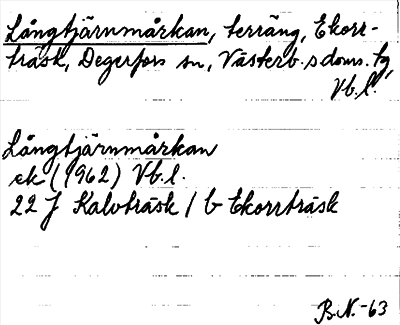 Långtjärnmårkan, terräng, Ekorr-
träsk, Degerfors sn, Västerb.s doms. tg,
Vb.l.
Långtjärnmårkan
ek (1962) Vb.l.
22 J Kalvträsk / b Ekorrträsk
B.N.-63